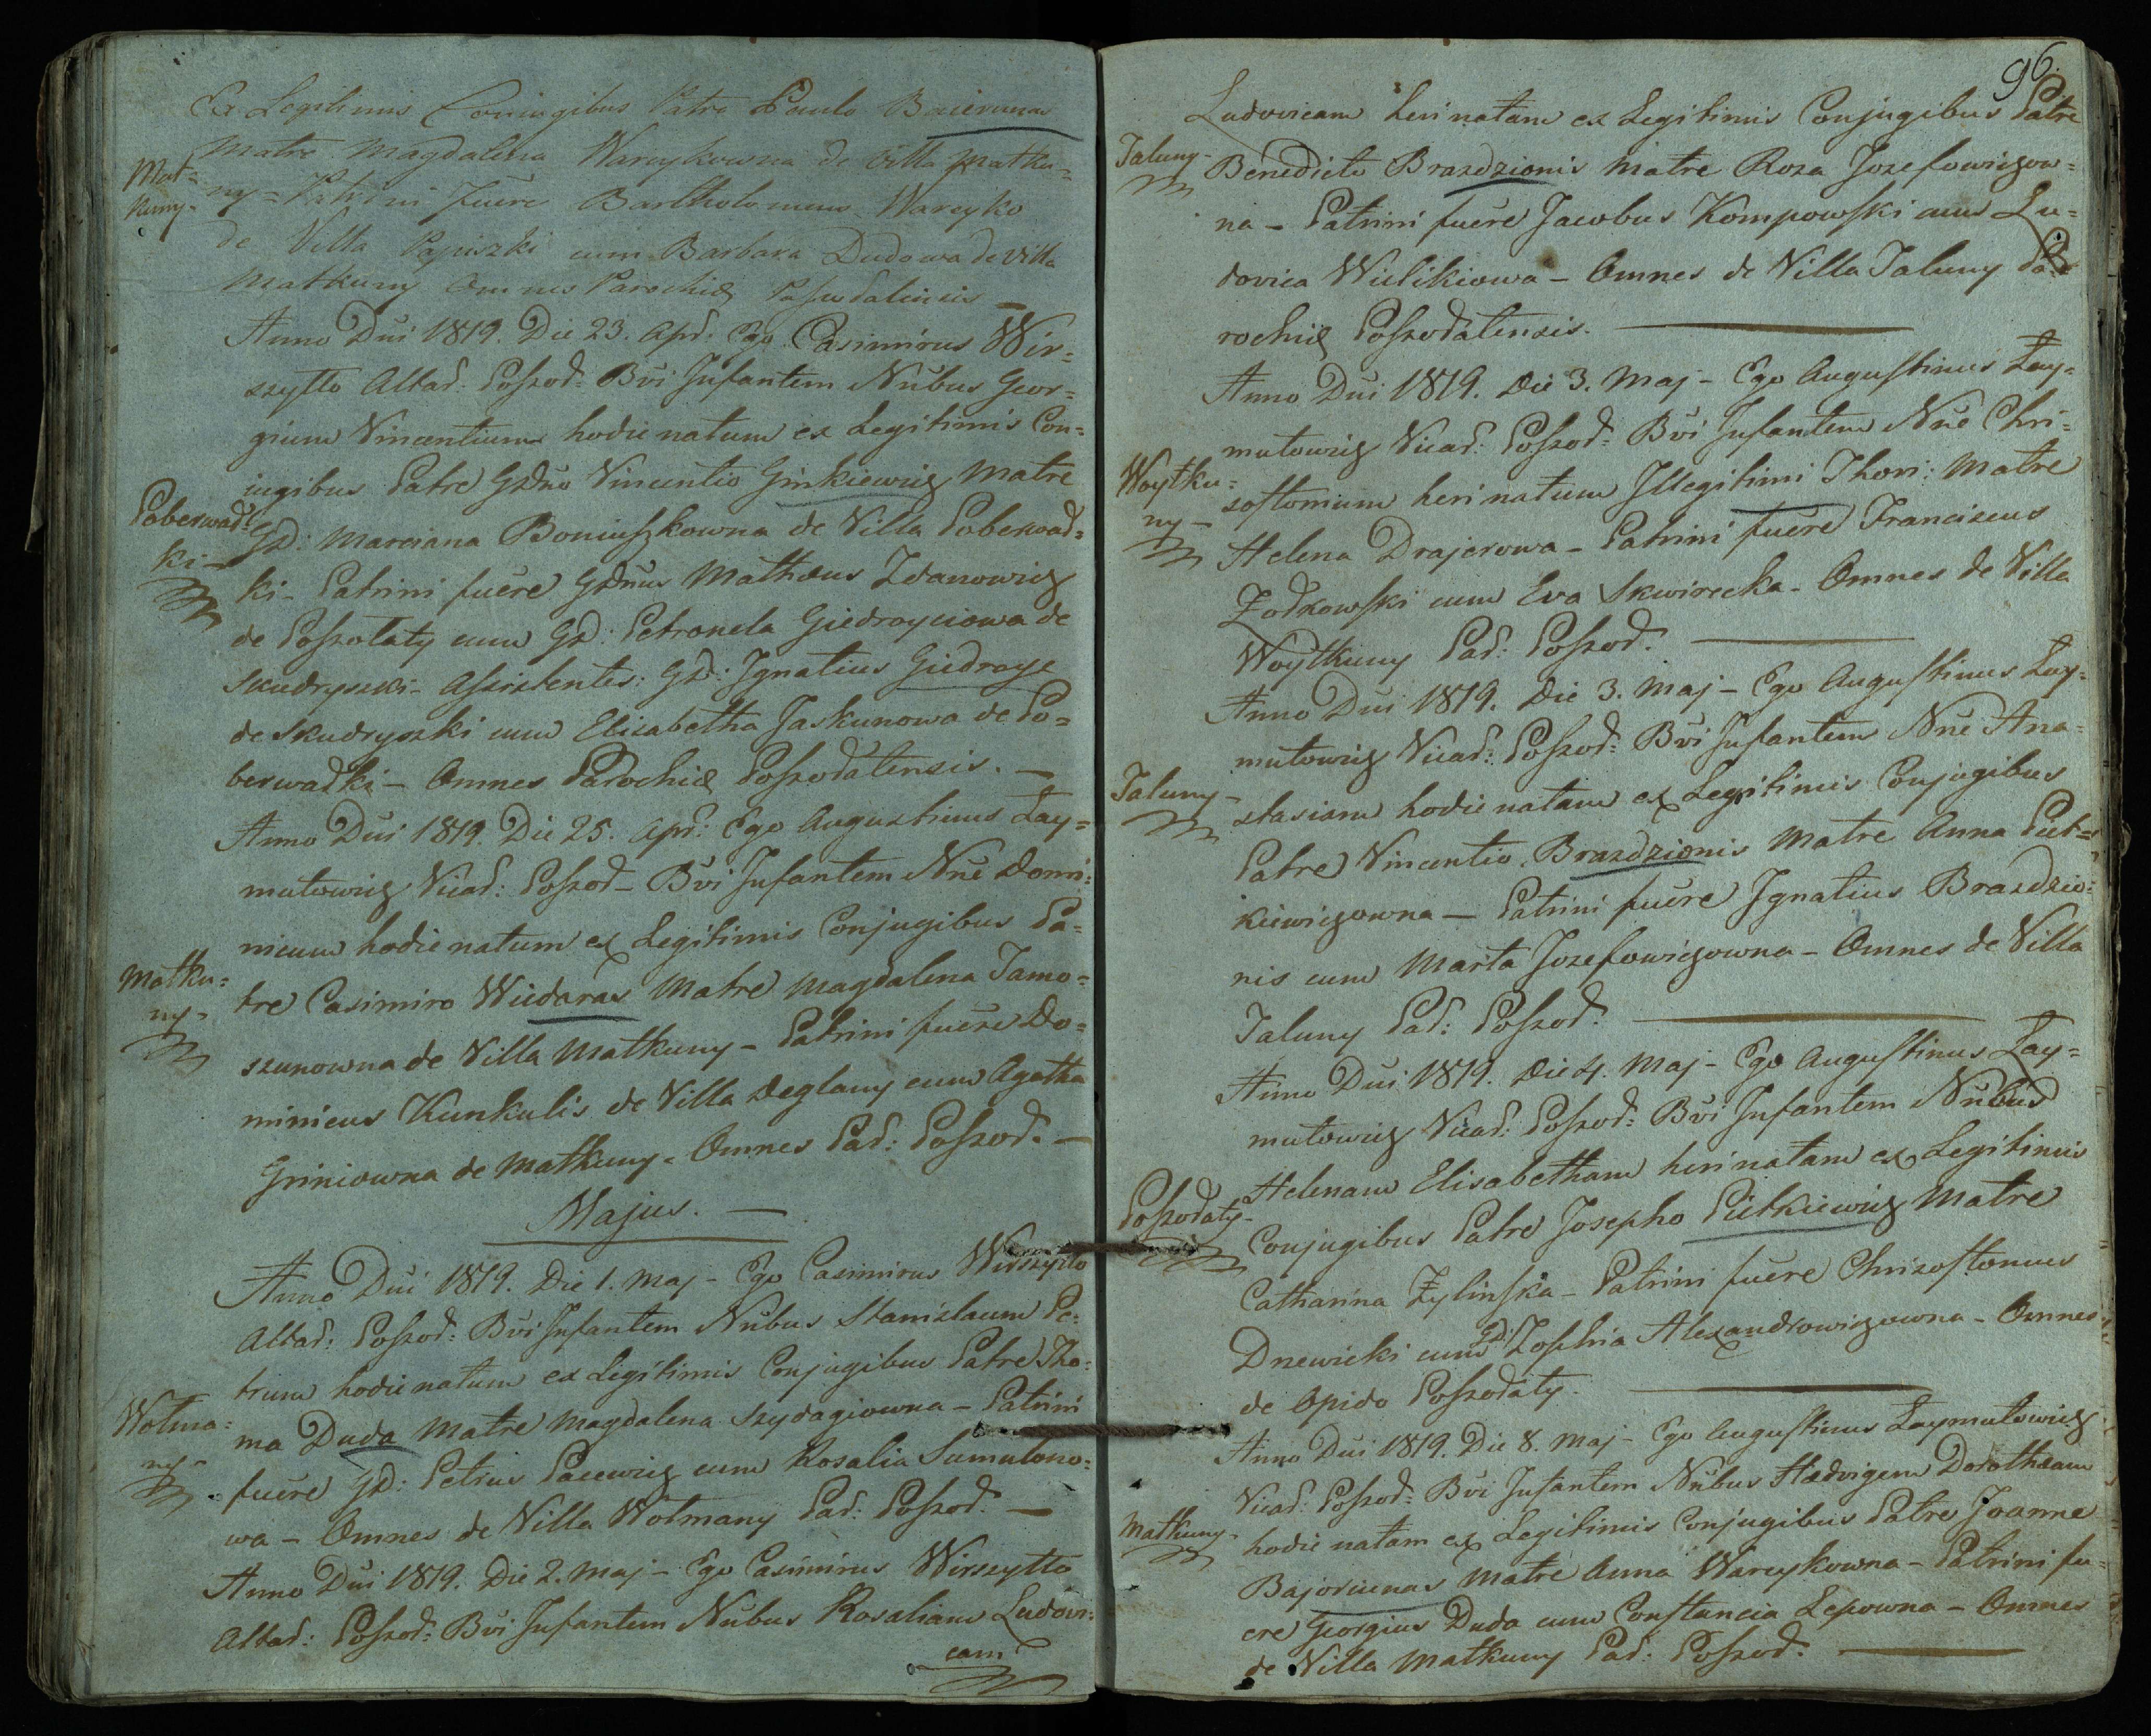 Ex Legitimis Coniugibus Patre Paulo Baierunas
Matre Magdalena Wareykowna de Villa Matku=
Mat=
kuny-
ny= Patrini fuere Bartholomeus Wareyko
de Villa Papiszki cum Barbara Dudowa de Villa
Matkuny Omnes Parochiæ
Anno Dni 1819. Die 23. Apr: Ego Casimirus Wir=
szytto Altar: Poszod= Bvi Infantem Nnbus Geor=
gium Vincentium hodie natum ex Legitimis Con=
iugibus Patre GDno Vincentio Ginkiewicz Matre
Poberwad=
ki-
GD: Marciana Boniuszkowna de Villa Poberwad=
ki- Patrini fuere GDnus Mathæus Zdanowicz
de Poszolaty cum GD: Petronela Giedroyciowa de
Skudryszki- Assistentes: GD: Ignatius Giedroyc
de Skudryszki cum Elisabetha Jaskunowa de Po=
berwadki- Omnes Parochiæ Poszodatensis. —
Anno Dni 1819. Die 25. Apr: Ego Augustinus Lay=
mutowicz Vicar: Poszod- Bvi Infantem Nne Domi=
nicum hodie natum ex Legitimis Conjugibus Pa=
Matku=
ny-
tre Casimiro Wiedaras Matre Magdalena Jamo=
szunowna de Villa Matkuny- Patrini fuere Do=
minicus Kunkulis de Villa Deglany cum Agatha
Griniowna de Matkuny. Omnes Par: Poszod. —
Majus. —
Anno Dni 1819. Die 1. Maj- Ego Casimirus Wirszytto
Altar: Poszod= Bvi Infantem Nnbus Stanislaum Pe=
trum hodie natum ex Legitimis Conjugibus Patre Tho=
Wolma=
ny-
ma Duda Matre Magdalena Szydagiowna- Patrini
fuere GD: Petrus Pacewicz cum Rosalia Sumulono=
wa- Omnes de Villa Wolmany Par: Poszod. —
Anno Dni 1819. Die 2. Maj- Ego Casimirus Wirszytto
Altar: Poszod= Bvi Infantem Nnbus Rosaliam Ludovi=
cam
96.
Ludovicam heri natam ex Legitimis Conjugibus Patre
Taluny-
Benedicto Brazdzionis Matre Roza Jozefowiczow=
na- Patrini fuere Jacobus Kompowski cum Lu=
dovica Wielikiowa- Omnes de Villa Taluny Pa=
rochiæ Poszodatensis. —
Anno Dni 1819. Die 3. Maj- Ego Augustinus Lay=
mutowicz Vicar: Poszod= Bvi Infantem Nne Chri=
Woytku=
ny-
sostomum heri natum Illegitimi Thori: Matre
Helena Drajerowa- Patrini fuere Franciscus
Zodkowski cum Eva Skwirecka- Omnes de Villa
Woytkuny Par: Poszod. —
Anno Dni 1819. Die 3. Maj- Ego Augustinus Lay=
mutowicz Vicar: Poszod= Bvi Infantem Nne Ana=
Taluny-
stasiam hodie natam ex Legitimis Conjugibus
Patre Vincentio Brazdzionis Matre Anna Piet=
kiewiczowna- Patrini fuere Ignatius Brazdzio=
nis cum Marta Jozefowiczowna- Omnes de Villa
Taluny Par: Poszod. —
Anno Dni 1819. Die 4. Maj- Ego Augustinus Lay=
mutowicz Vicar: Poszod= Bvi Infantem Nnbus
Poszodaty-
Helenam Elisabetham heri natam ex Legitimis
Conjugibus Patre Josepho Pietkiewicz Matre
Catharina Zylinska- Patrini fuere Chrisostomus
Drzewicki cum GD: Zophia Alexandrowiczowna- Omnes
de Opido Poszodaty. —
Anno Dni 1819. Die 8. Maj- Ego Augustinus Laymutowicz
Vicar: Poszod= Bvi Infantem Nnbus Hædvigem Dorotheam
Matkuny-
hodie natam ex Legitimis Conjugibus Patre Joanne
Bajoriunas Matre Anna Wareykowna- Patrini fu=
ere Georgius Duda cum Constancia Lepowna- Omnes
de Villa Matkuny Par: Poszod. —